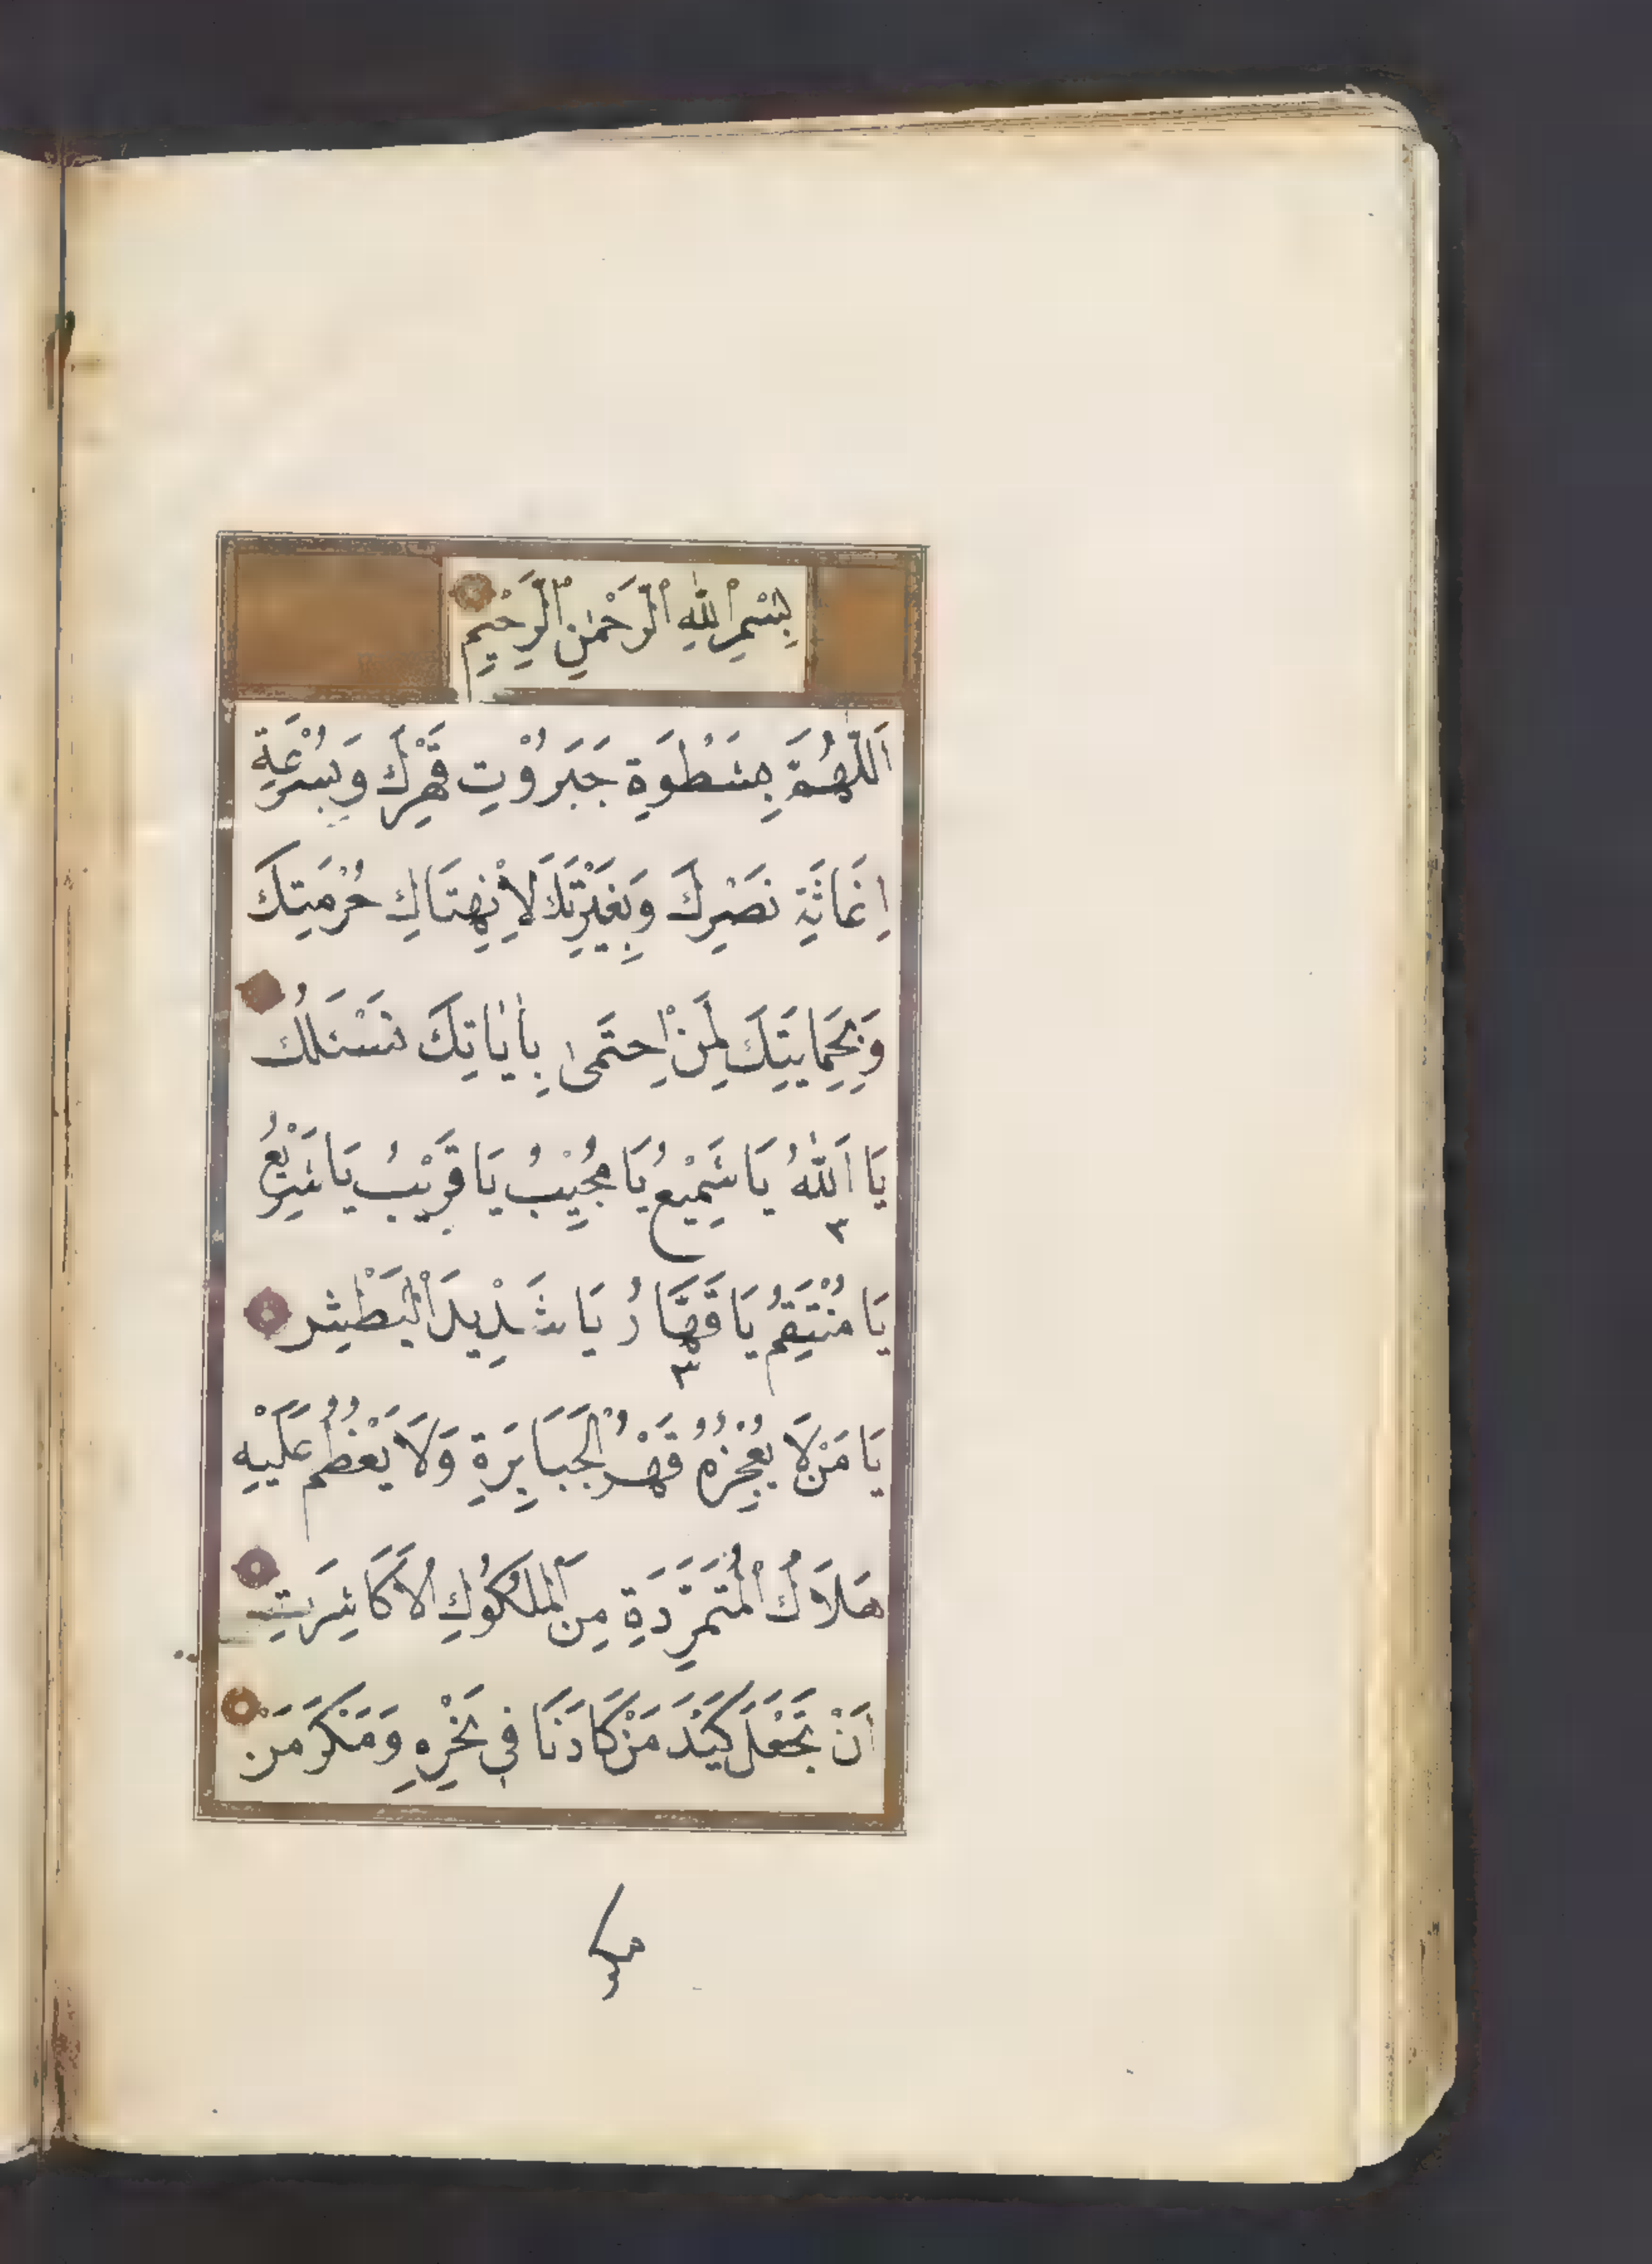 بِسْمِ اللهِ الرَّحْمٰنِ الرَّحِيمِ
اَللّٰهُمَّ بِسَطْوَةِ جَبَرُوْتِ قَهْرِكَ وَبِسُرْعَةِ
اِغَاثَةِ نَصْرِكَ وَبِغَيْرَتِكَ لِاِنْتِهَاكِ حُرْمَتِكَ
وَبِحِمَايَتِكَ لِمَنْ اِحْتَمٰى بِاٰيَاتِكَ نَسْئَلُكَ
يَا اَللهُ يَا سَمِيْعُ يَا مُجِيْبُ يَا قَرِيْبُ يَا سَرِيْعُ
٣
يَا مُنْتَقِمُ يَا قَهَّارُ يَا شَدِيدَ الْبَطْشِ
٣
يَا مَنْ لَا يُعْجِزُهُ قَهْرُ الْجَبَابِرَةِ وَلَا يَعْظُمُ عَلَيْهِ
هَلَاكُ الْمُتَمَرِّدَةِ مِنَ الْمُلُوكِ الْاَكَاسِرَةِ
اَنْ تَجْعَلَ كَيْدَ مَنْ كَادَنَا فِي نَحْرِهِ وَمَكْرَ مَنْ
مكر